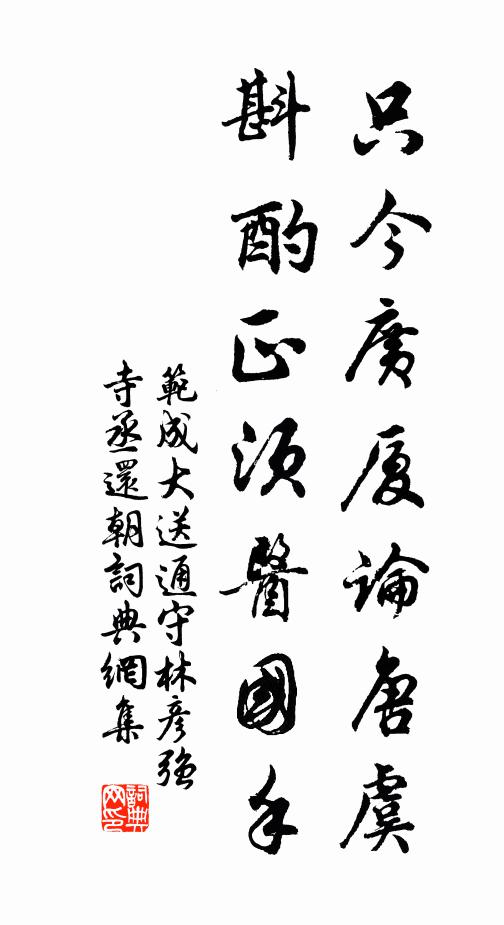 只今廣厦論唐虞
斟酌正須醫國手
範成大送通守林彦強
寺丞還朝詞典網集
詞典網印